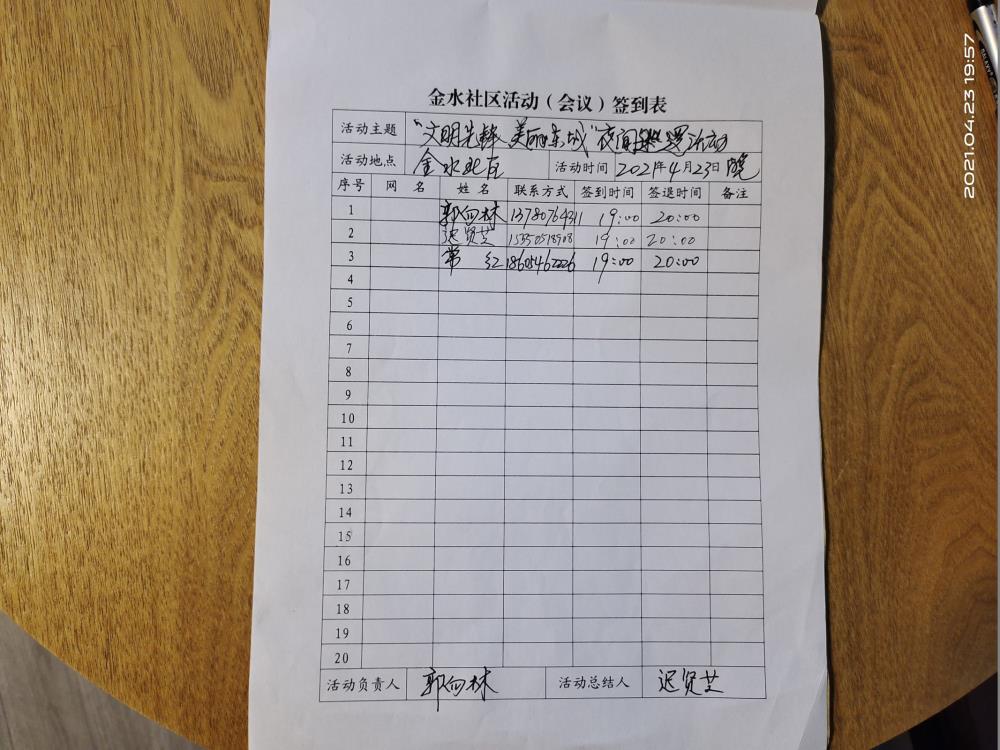 金水社区活动（会议）签到表
活动主题 “文明先锋 美丽东城”夜间巡逻活动
活动地点 金水北区 活动时间 2021年4月23日 晚
序号 网 名 姓 名 联系方式 签到时间 签退时间 备注
1 郭向林 13780764311 19:00 20:00
2 迟贤芝 15350518908 19:00 20:00
3 常 红 18605462226 19:00 20:00
4
5
6
7
8
9
10
11
12
13
14
15
16
17
18
19
20
活动负责人 郭向林 活动总结人 迟贤芝
2021.04.23 19:57